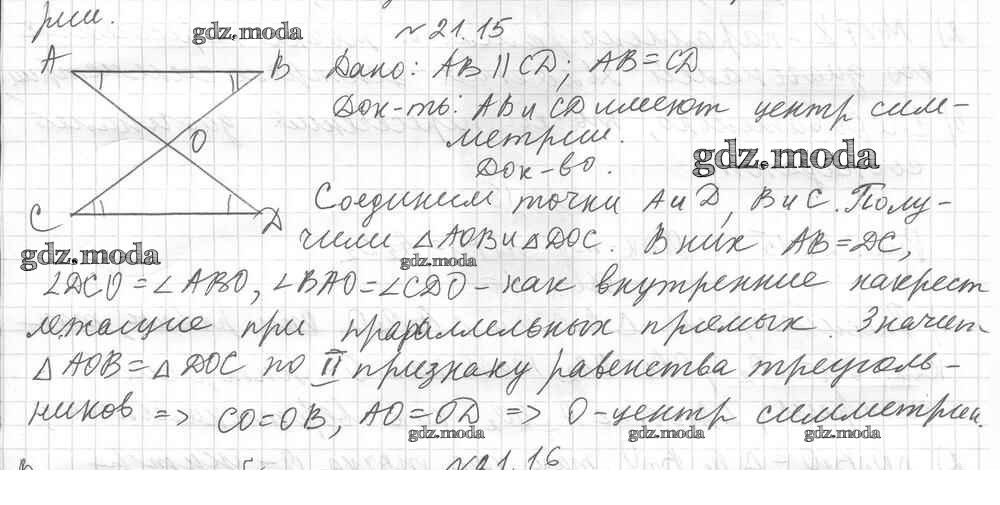 рии.
gdz.moda
№21.15
A B
Дано: AB || CD; AB = CD
Док-ть: AB и CD имеют центр сим-
метрии.
O
gdz.moda
Док-во.
C D
Соединим точки A и D, B и C. Полу-
gdz.moda
чили △AOB и △DOC. В них AB = DC,
gdz.moda
∠DCO = ∠ABO, ∠BAO = ∠CDO - как внутренние накрест
лежащие при праралельных прямых. Значит
△AOB = △DOC по II признаку равенства треуголь-
ников => CO = OB, AO = OD => O - центр симметрии.
gdz.moda gdz.moda gdz.moda
№21.16